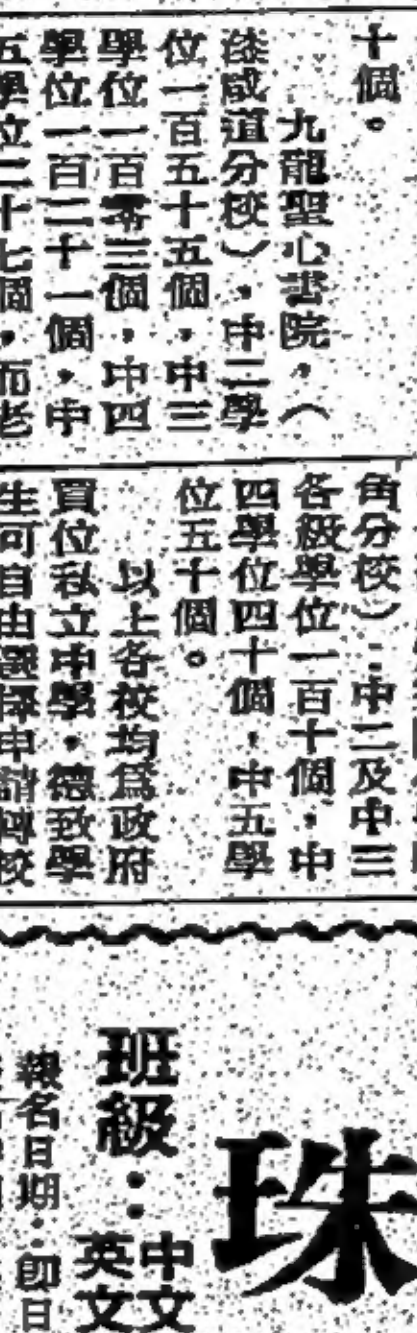 十個。
九龍聖心書院,(
漆咸道分校),中二學
位一百五十五個,中三
學位一百零三個,中四
學位一百二十一個,中
五學位二十七個,而老
角分校):中二及中三
各級學位一百十個,中
四學位四十個,中五學
位五十個。
以上各校均爲政府
買位私立中學,德致學
生可自由選擇申請轉校
珠
班級:中文
英文
報名日期:卽日